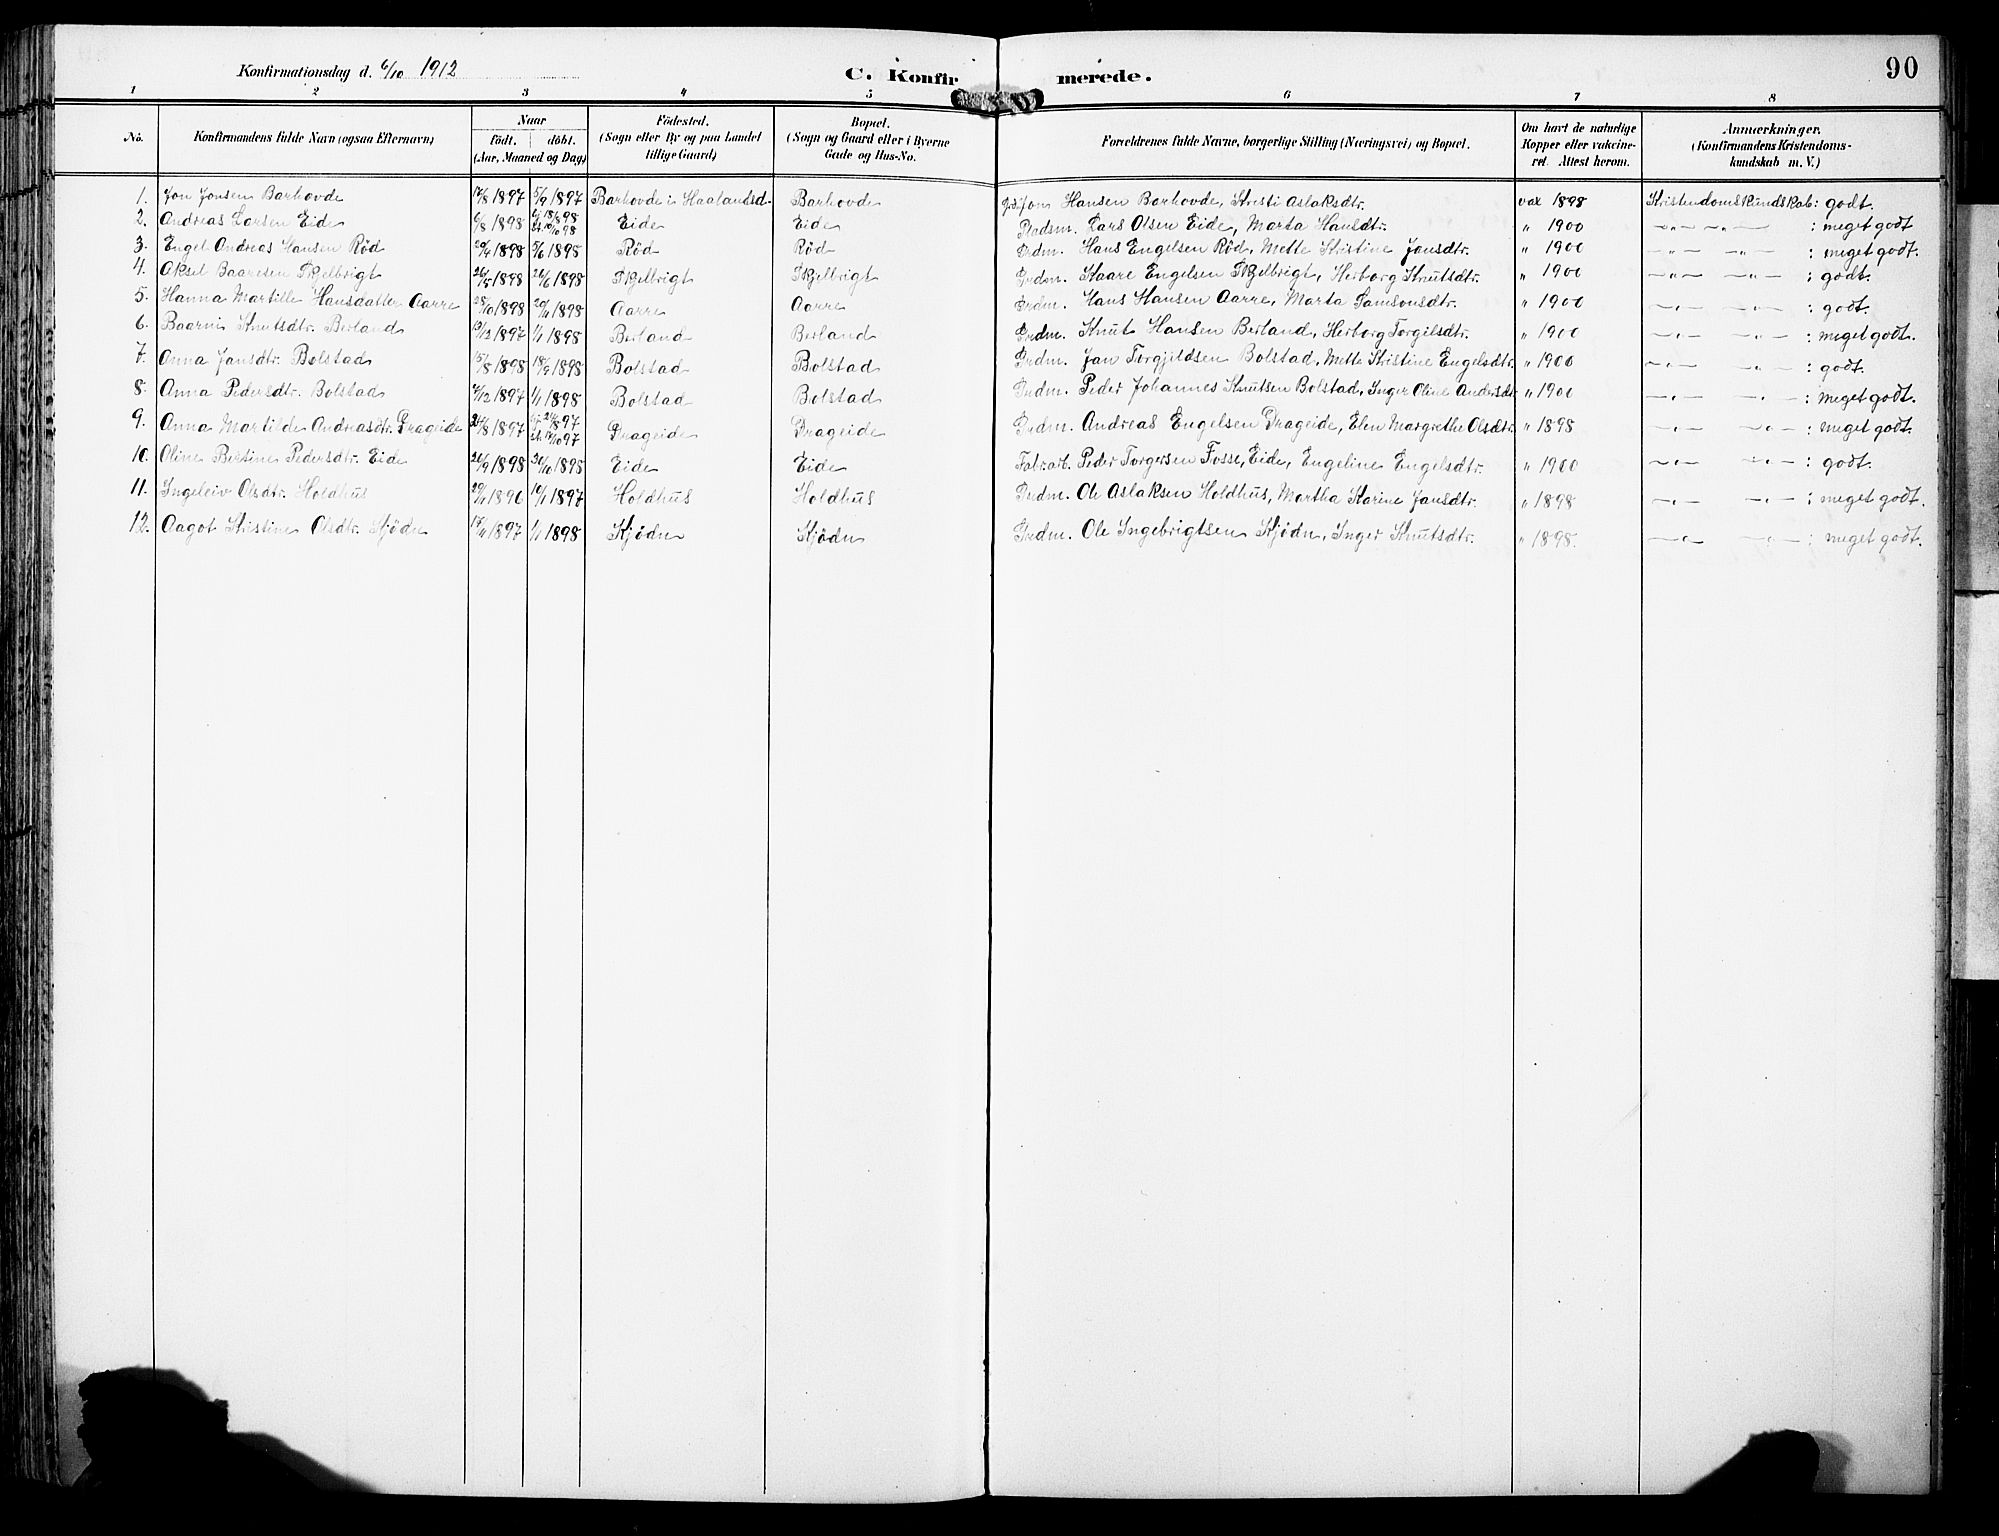 Konfirmationsdag d. 6/10 1912 C. Konfirmerede. 90
1 2 3 4 5 6 7 8
No. Konfirmandens fulde Navn (ogsaa Efternavn) Naar födt. döbt. (Aar, Maaned og Dag) Födested. (Sogn eller By og paa Landet tillige Gaard) Bopæl. (Sogn og Gaard eller i Byerne Gade og Hus-No. Forældrenes fulde Navne, borgerlige Stilling (Næringsvei) og Bopæl. Om havt de naturlige Kopper eller vakcineret. Attest herom. Anmærkninger. (Konfirmandens Kristendomskundskab m. V.)
1. Jon Jonsen Barhovde 17/8 1897 5/9 1897 Barhovde i Haalandsd. Barhovde Jon Hansen Barhovde, Kristi Aslaksdtr. vax 1898 Kristendomskundskab: godt.
2. Andreas Larsen Eide 6/8 1898 Eide Eide Pladsm. Lars Olsen Eide, Marta Hansdtr. " 1900 —"— —"— : meget godt
3. Engel Andreas Hansen Röd 20/4 1898 5/6 1898 Röd Röd Grdm. Hans Engelsen Röd, Mette Kristine Jansdtr. " 1900 —"— —"— : meget godt.
4. Aksel Baaresen Skjelbrigt 26/5 1898 26/6 1898 Skjelbrigt Skjelbrigt Grdm. Kaare Engelsen Skjelbrigt, Herborg Knutsdtr. " 1900 —"— —"— : godt.
5. Hanna Martille Hansdatter Aarre 28/10 1898 20/11 1898 Aarre Aarre Grdm. Hans Hansen Aarre, Marta Samsonsdtr. " 1900 —"— —"— : godt.
6. Baarni Knutsdtr. Berland 13/12 1897 1/1 1898 Berland Berland Grdm. Knut Hansen Berland, Herborg Torgilsdtr. " 1900 —"— —"— : meget godt.
7. Anna Jansdtr. Bolstad 15/8 1898 18/9 1898 Bolstad Bolstad Grdm. Jan Torgjeldsen Bolstad, Mette Kristine Engelsdtr. " 1900 —"— —"— : godt.
8. Anna Pedersdtr. Bolstad 1897 1/1 1898 Bolstad Bolstad Grdm. Peder Johannes Knutsen Bolstad, Inger Oline Andersdtr " 1900 —"— —"— : meget godt.
9. Anna Martilde Andreasdtr. Drageide 24/8 1897 Drageide Drageide Grdm. Andreas Engelsen Drageide, Elen Margrethe Olsdtr. " 1898 —"— —"— : meget godt.
10. Oline Bertine Pedersdtr. Eide 26/9 1898 30/10 1898 Eide Eide Fabr.arb. Peder Torgersen Fosse, Eide, Engeline Engelsdtr. " 1900 —"— —"— : godt.
11. Ingeleiv Olsdtr. Holdhus 29/11 1896 10/1 1897 Holdhus Holdhus Grdm. Ole Aslaksen Holdhus, Martha Karine Jansdtr. " 1898 —"— —"— : meget godt.
12. Aagot Kristine Olsdtr. Kjödn 17/11 1897 1/1 1898 Kjödn Kjödn Grdm. Ole Ingebrigtsen Kjödn, Inger Knutsdtr. " 1898. —"— —"— : meget godt.